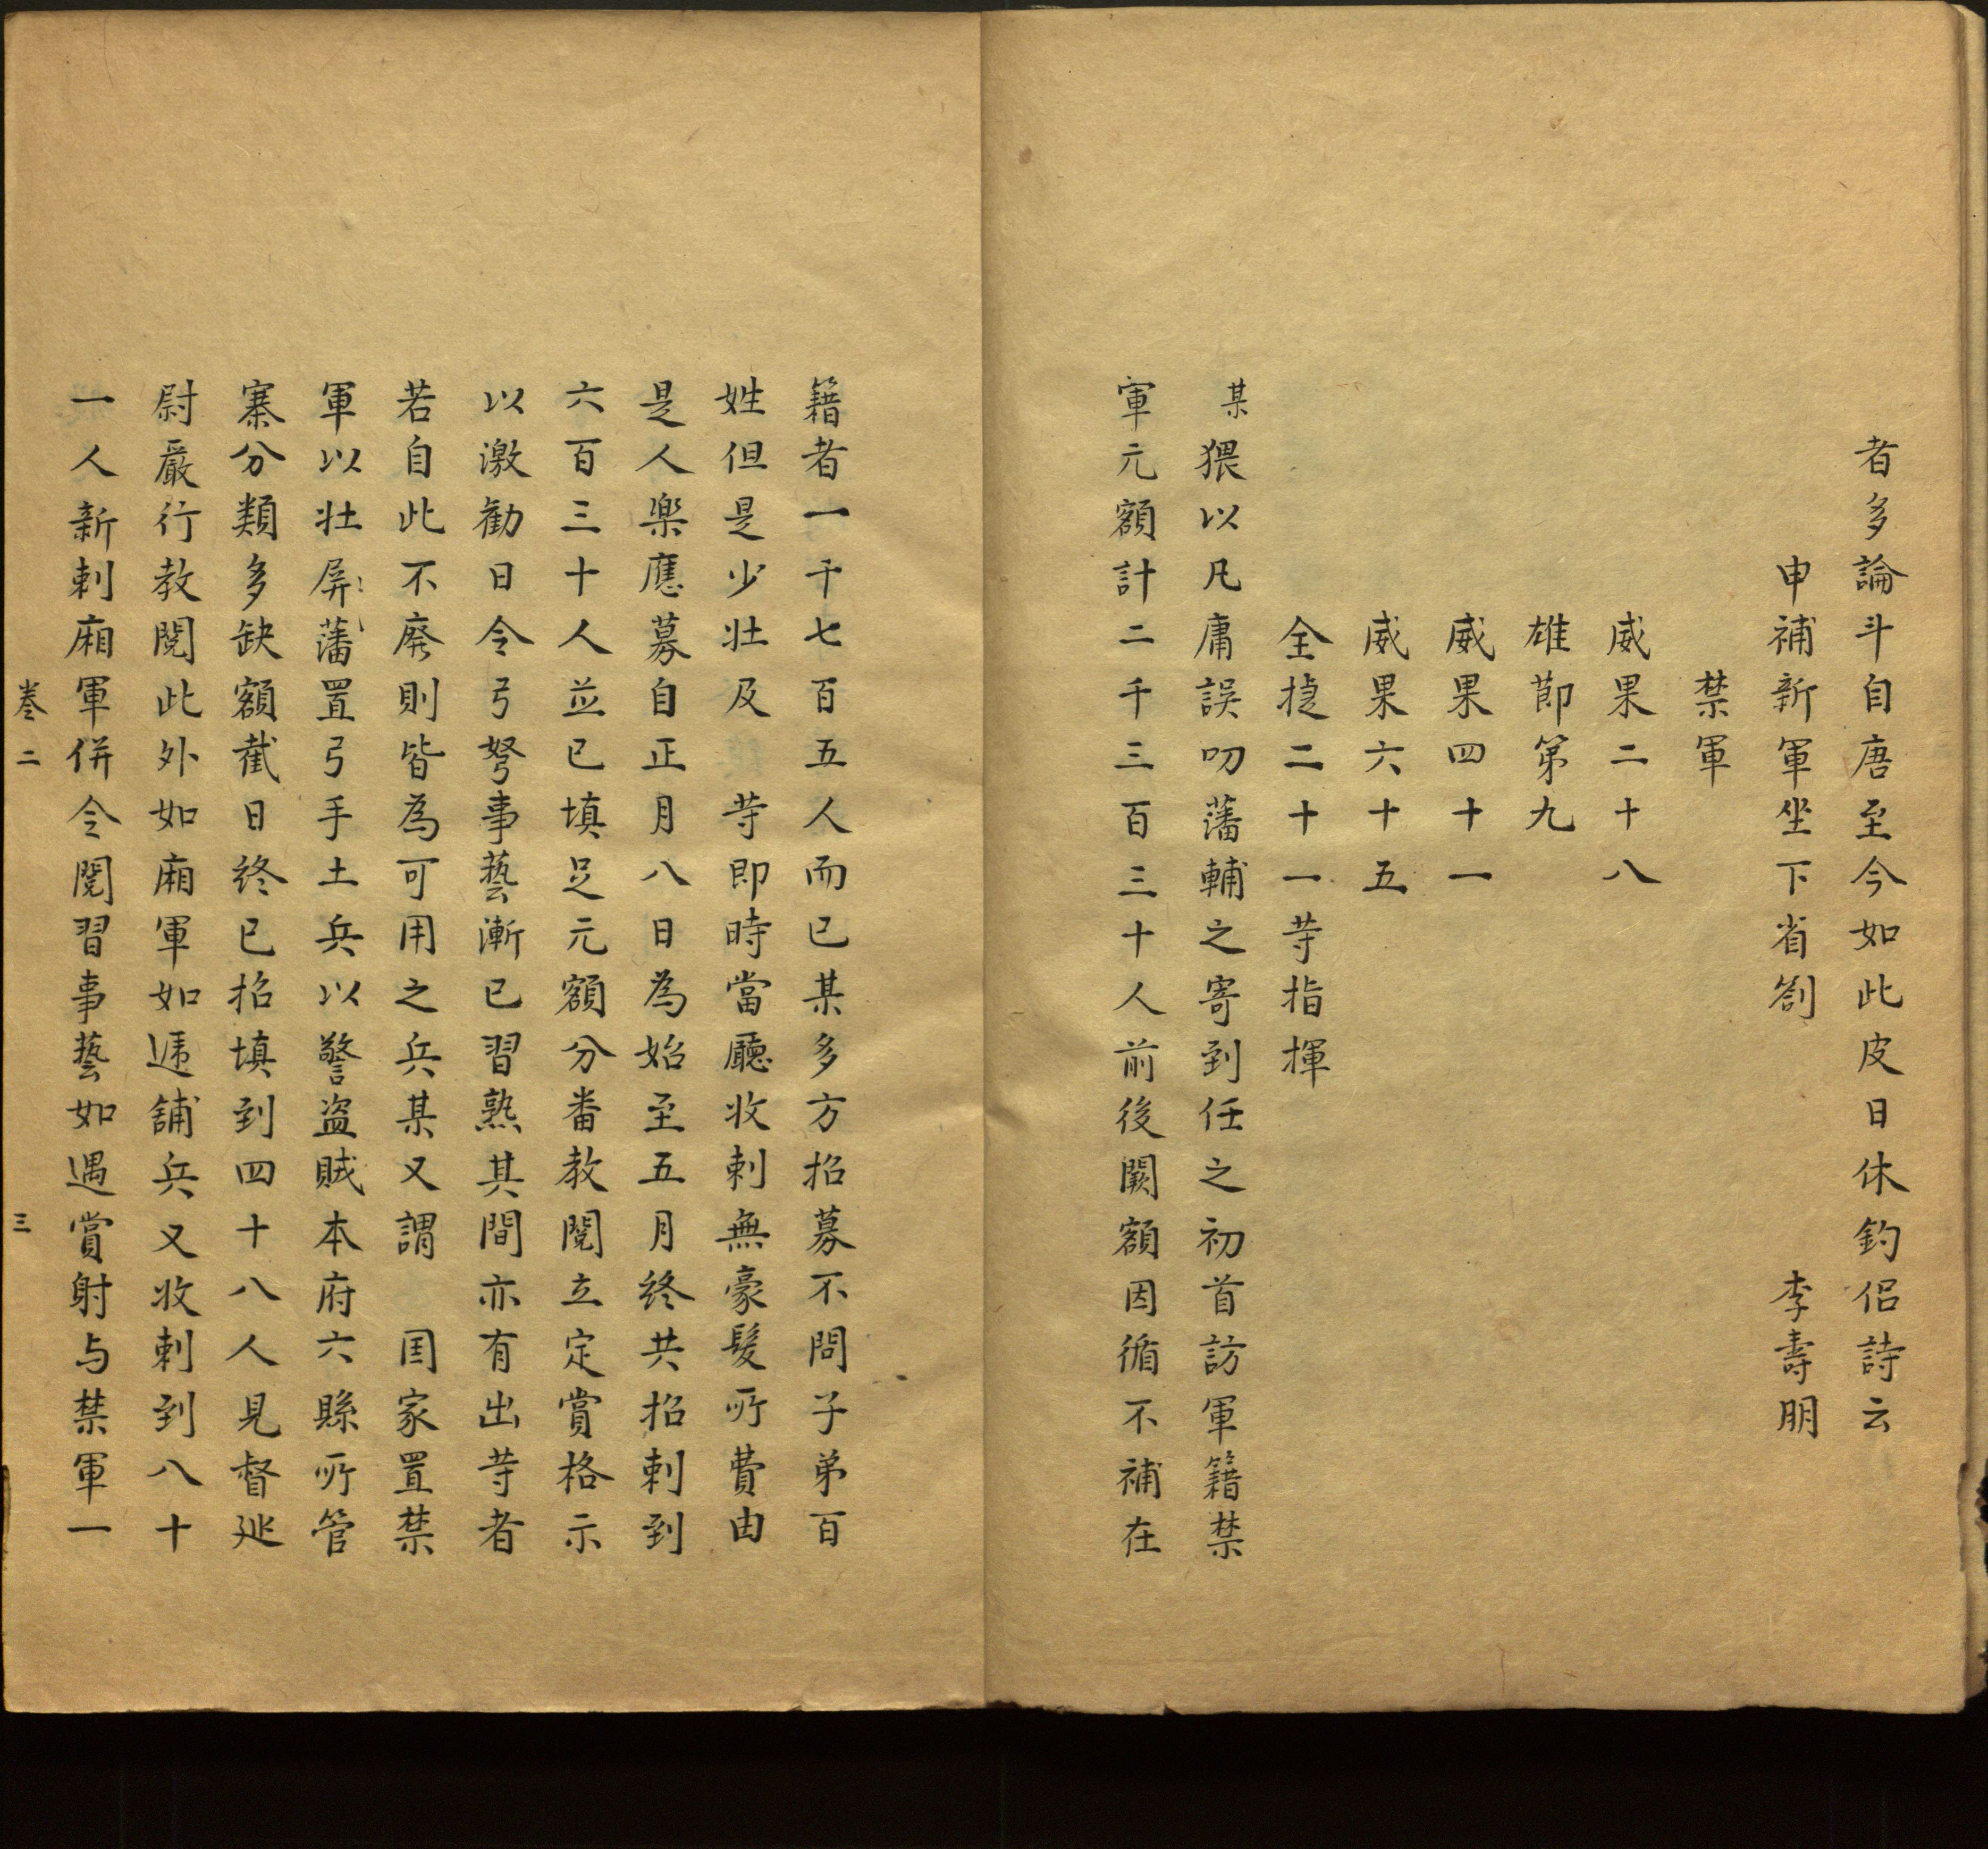 者多論斗自唐至今如此皮日休釣侶詩云
申補新軍坐下省劄　李壽朋
禁軍
威果二十八
雄莭第九
威果四十一
威果六十五
全捷二十一䓁指揮
某猥以凡庸誤叨藩輔之寄到任之初首訪軍籍禁
軍元額計二千三百三十人前後闕額因循不補在
籍者一千七百五人而已某多方招募不問子弟百
姓但是少壮及　䓁即時當廳收刺無豪髮所費由
是人樂應募自正月八日為始至五月終共招刺到
六百三十人並已填足元額分番教閱立定賞格示
以激勸日令弓弩事藝漸已習熟其間亦有出䓁者
若自此不廢則皆為可用之兵某又謂　国家置禁
軍以壮屏藩置弓手土兵以警盜賊本府六縣所管
寨分類多缺額截日終已招填到四十八人見督廵
尉嚴行教閱此外如廂軍如逓舖兵又收刺到八十
一人新刺廂軍併令閱習事藝如遇賞射与禁軍一
卷二　三